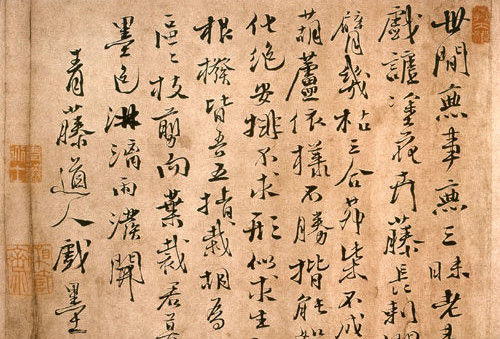 世間無事無三昧老
戲謔塗花卉藤長刺
臂幾枯三合茅柴不成
葫蘆依樣不勝揩能如
化絕安排不求形似求生
根撥皆吾五指栽胡為
區〻枝剪而葉裁君莫
墨色淋漓雨潑開
青藤道人戲墨